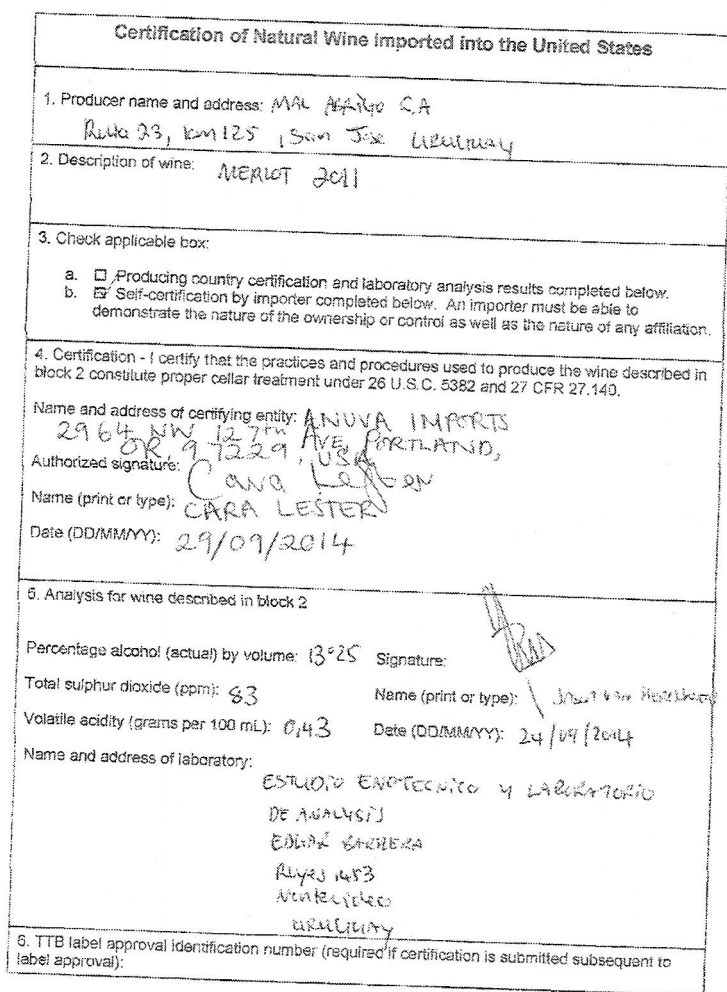 Certification of Natural Wine Imported into the United States
1. Producer name and address: MAL ABRIGO S.A
Ruta 23, km 125, San Jose URUGUAY
2. Description of wine: MERLOT 2011
3. Check applicable box:
a. ☐ Producing country certification and laboratory analysis results completed below.
b. ☑ Self-certification by importer completed below. An importer must be able to
demonstrate the nature of the ownership or control as well as the nature of any affiliation.
4. Certification - I certify that the practices and procedures used to produce the wine described in
block 2 constitute proper cellar treatment under 26 U.S.C. 5382 and 27 CFR 27.140.
Name and address of certifying entity: ANUVA IMPORTS
2964 NW 127th AVE, PORTLAND,
OR, 97229, USA
Authorized signature: Cara Lester
Name (print or type): CARA LESTER
Date (DD/MM/YY): 29/09/2014
5. Analysis for wine described in block 2
Percentage alcohol (actual) by volume: 13.25 Signature:
Total sulphur dioxide (ppm): 83 Name (print or type):
Volatile acidity (grams per 100 mL): 0,43 Date (DD/MM/YY): 24/09/2014
Name and address of laboratory:
ESTUDIO ENOTECNICO Y LABORATORIO
DE ANALYSIS
EDGAR BARRERA
Reyes 1453
Montevideo
URUGUAY
6. TTB label approval identification number (required if certification is submitted subsequent to
label approval):